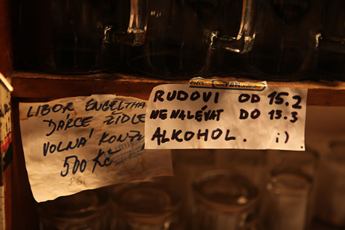 LIBOR ENGELTHA
DÁRCE ŽIDLE
VOLNÁ KONZ
500 Kč
RUDOVI OD 15.2
NENALÉVAT DO 15.3
ALKOHOL. ;)